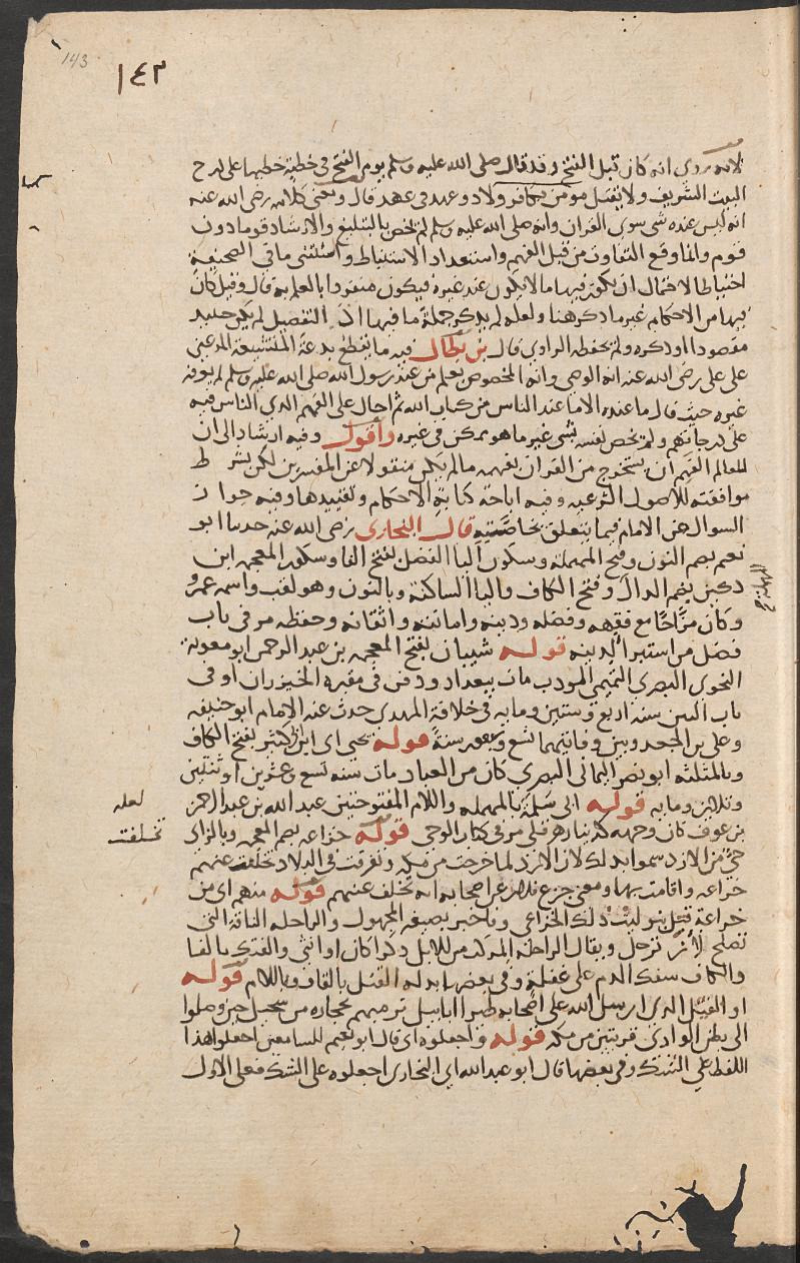 143
١٤٣
لانه روي انه كان قبل الفتح وقد قال صلى الله عليه وسلم يوم الفتح في خطبة خطبها على درج
البيت الشريف ولا يقتل مومن بكافر ولا ذو عهد في عهده قال ومعنى كلامه رضى الله عنه
انه ليس عنده شى سوى القران وانه صلى الله عليه وسلم لم يخص بالتبليغ والارشاد قوما دون
قوم وانما وقع التفاوت من قبل الفهم واستعداد الاستنباط واستثنى ما في الصحيفة
احتياطا لاحتمال ان يكون فيها ما لا يكون عند غيره فيكون منفردا بالعلم به قال وقيل كان
فيها من الاحكام غير ما ذكر هنا ولعله لم يذكر جملة ما فيها اذ التفصيل لم يكن حينيذ
مقصودا او ذكره ولم يحفظه الراوي قال بن بطال فيه ما يقطع بدعة المتشيعة المدعين
على على رضى الله عنه انه الوصى وانه المخصوص بعلم من عند رسول الله صلى الله عليه وسلم لم يعرفه
غيره حيث قال ما عنده الا ما عند الناس من كتاب الله ثم احال على الفهم الذي الناس فيه
على درجاتهم ولم يخص نفسه بشى غير ما هو ممكن في غيره واقول وفيه ارشاد الى ان
للعالم الفهم ان يستخرج من القران بفهمه ما لم يكن منقولا عن المفسرين لكن بشرط
موافقته للاصول الشرعيه وفيه اباحة كتابة الاحكام وتقييدها وفيه جواز
السوال عن الامام فيما يتعلق بخاصته قال البخارى رضى الله عنه حدثنا ابو
نعيم بضم النون وفتح المهملة وسكون اليا الفضل بفتح الفا وسكون المعجمه ابن
دكين بضم الدال وفتح الكاف واليا الساكنة وبالنون وهو لقب واسمه عمرو
وكان مزاحا مع فقهه وفضله ودينه وامانته واتقانه وحفظه مر في باب
فضل من استبرا لدينه قوله شيبان بفتح المعجمه بن عبد الرحمن ابو معوية
النحوى البصرى التميمى المودب مات ببغداد ودفن في مقبرة الخيزران او في
باب التين سنة اربع وستين ومايه في خلافة المهدى حدث عنه الامام ابو حنيفه
وعلى بن الجعد وبين وفاتيهما تسع وسبعون سنة قوله يحيى اى ابن ابى كثير بفتح الكاف
وبالمثلثه ابو نصر اليمانى البصرى كان من العباد مات سنه تسع وعشرين او ثنتين
وثلاثين ومايه قوله ابى سلمة بالمهمله واللام المفتوحتين عبد الله بن عبد الرحمن
بن عوف كان وجهه كدينار هرقلى مر في كتاب الوحى قوله خزاعه بضم المعجمه وبالزاى
حى من الازد سموا بذلك لان الازد لما خرجت من مكه وتفرقت في البلاد تخلفت عنهم
خزاعه واقامت بها ومعنى خزع فلان عن اصحابه انه تخلف عنهم قوله منهم اى من
خزاعة قتل بنو ليث ذلك الخزاعى وفاخبر بصيغة المجهول والراحله الناقة التى
تصلح لان ترحل ويقال الراحلة المركب من الابل ذكرا كان او انثى والفتك بالفا
والكاف سفك الدم على غفلة وفي بعضها بدله القتل بالقاف وباللام قوله
او الفيل الذى ارسل الله على اصحابه طيرا ابابيل ترميهم بحجاره من سجيل حين وصلوا
الى بطن الوادى قريبين من مكه قوله واجعلوه اى قال ابو نعيم للسامعين اجعلوا هذا
اللفظ على الشك وفي بعضها قال ابو عبد الله اى البخارى اجعلوه على الشك فعلى الاول
لعله
تخلفت